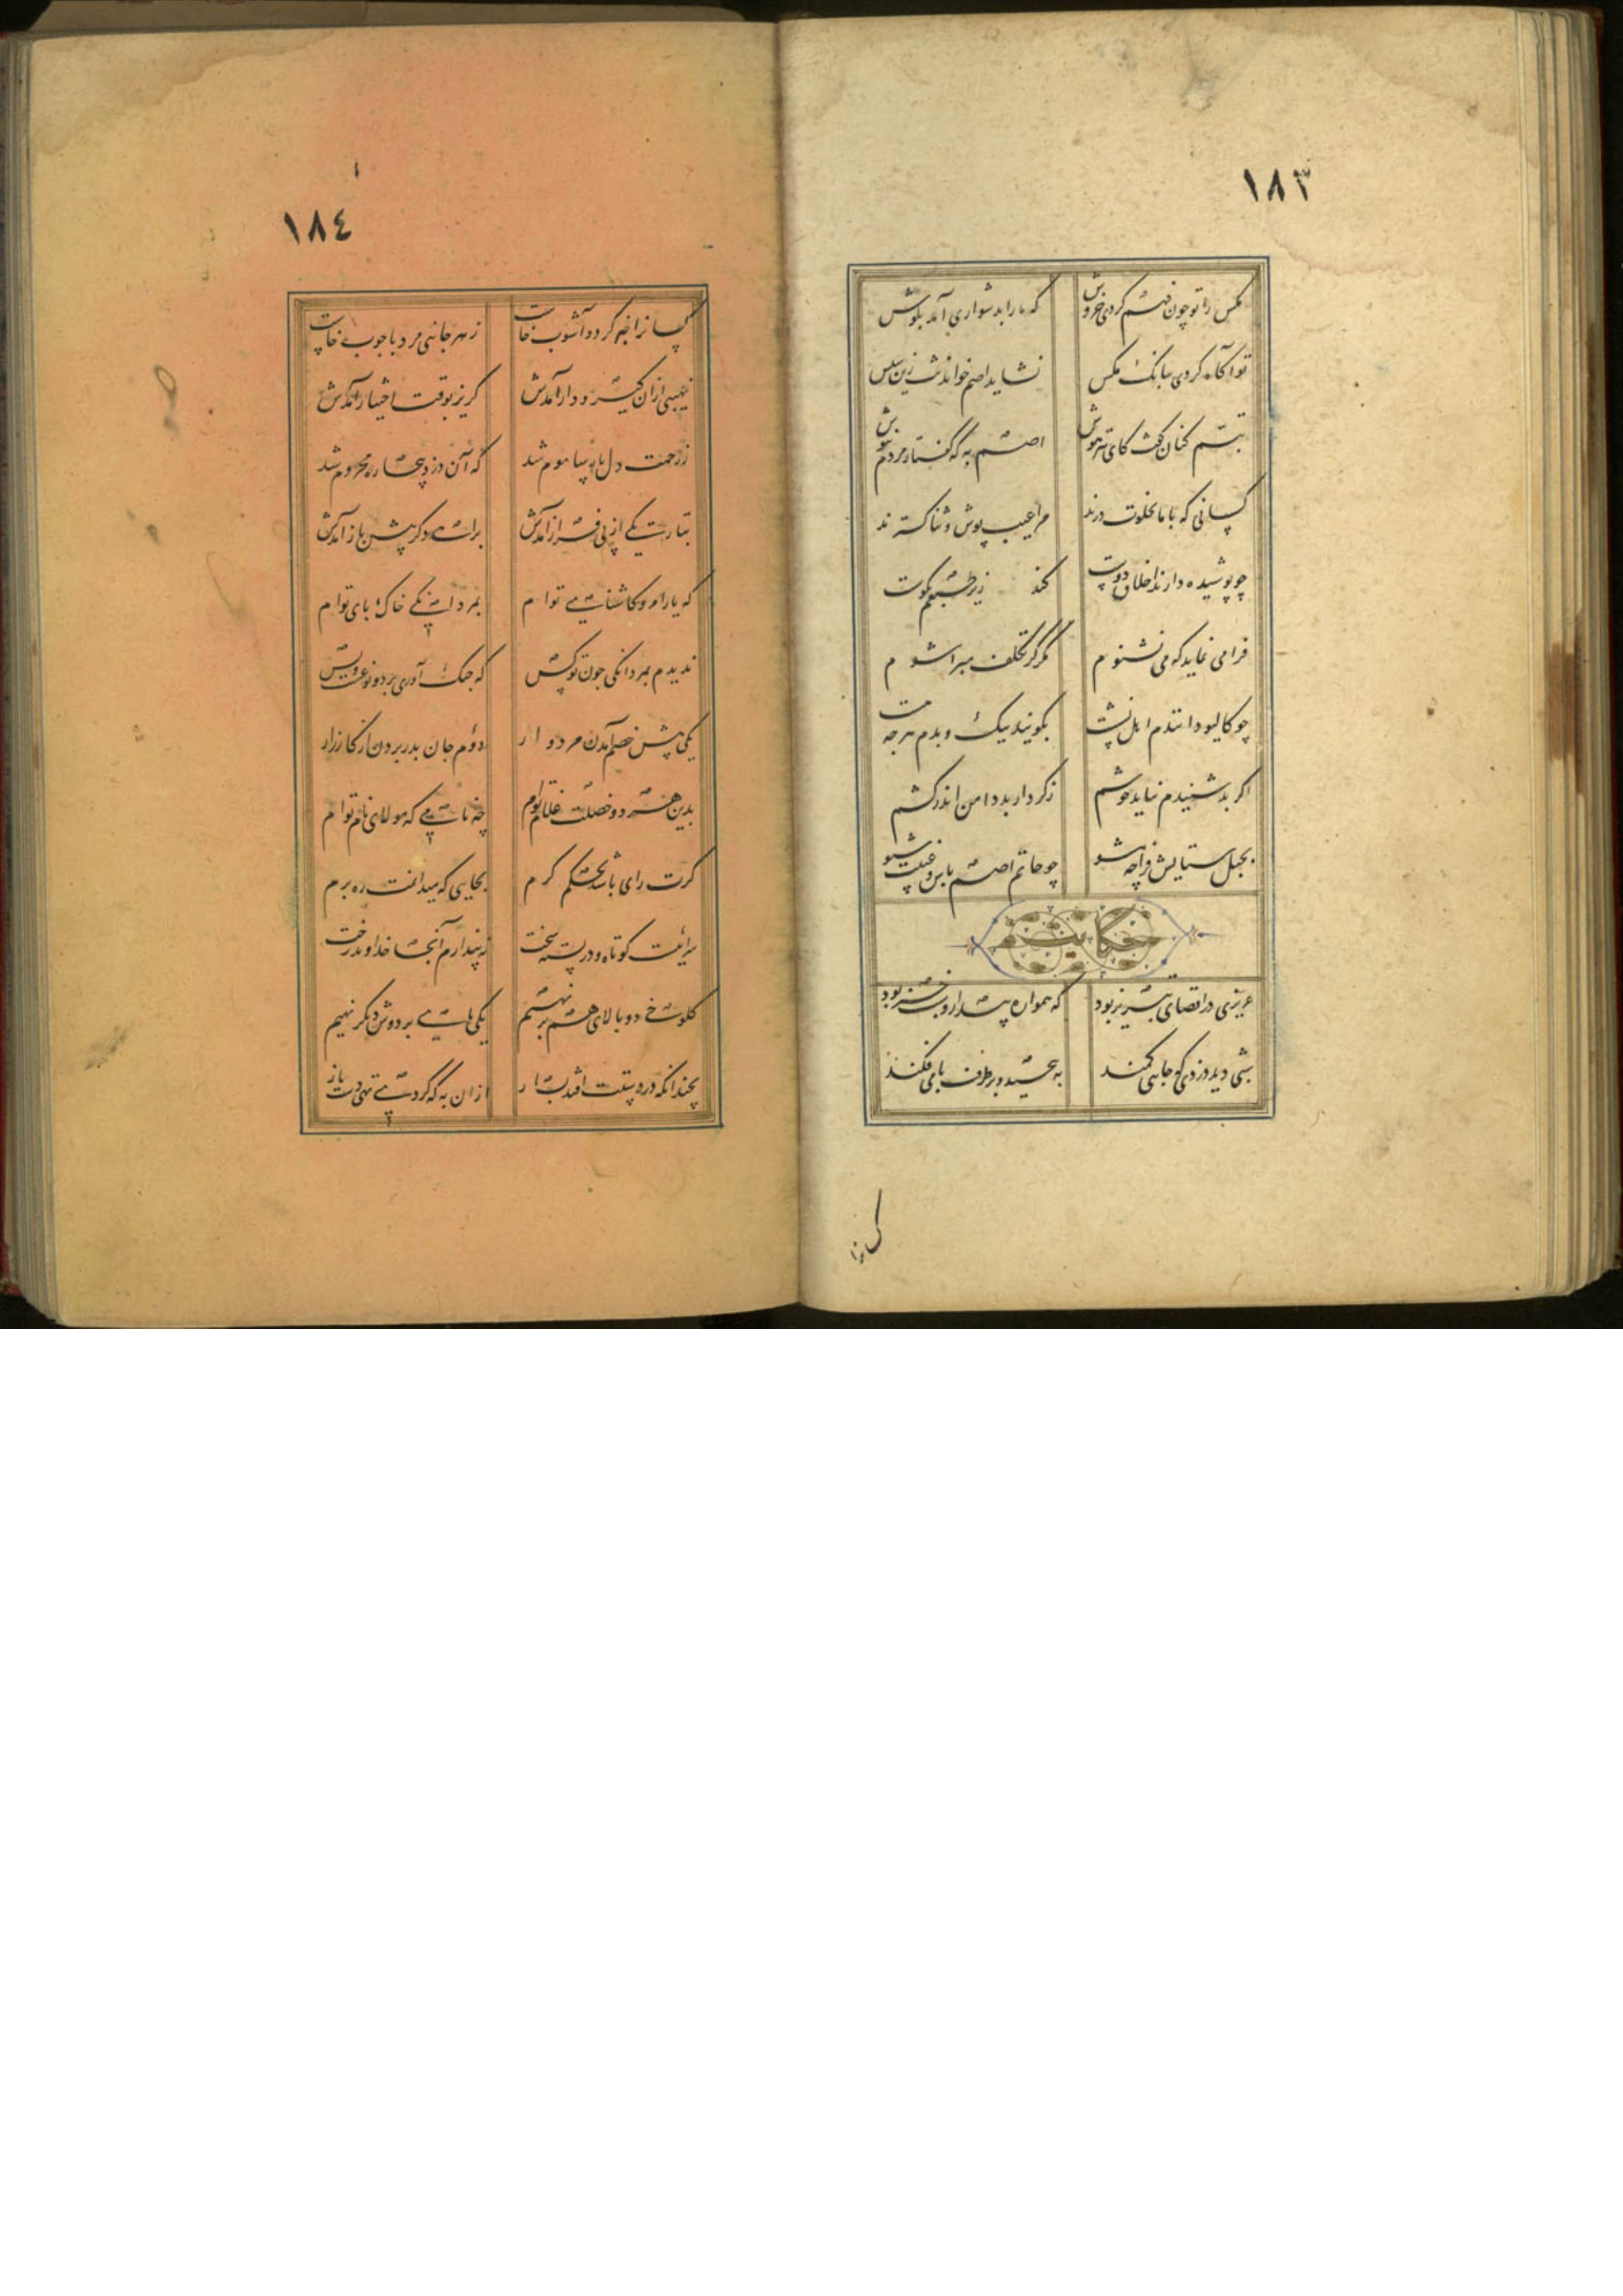 ١٨٣
مکس را تو چون فهم کردی خروش که ما را بدشواری آمد بکوش
تو آکاه کردی ببانک مکس نشاید اصم خواندنت زین سپس
تبسم کنان کفت کای تیزهوش اصم به که کفتار مردم نیوش
کسانی که با ما بخلوت درند مرا عیب پوش و ثنا کسترند
چو پوشیده دارند اخلاق دوست کند زیر طبعم نکوست
فرا می نماید که می نشنوم مکر کز تکلف مبرا شوم
چو کالیو دانندم اهل نشست بکویند نیک و بدم هرچه هست
اکر بد شنیدم نیاید خوشم ز کردار بد دامن اندر کشم
بحبل ستایش فراچه مشو چو حاتم اصم باش و غیبت شنو
حکایت
عزیزی در اقصای تبریز بود که همواره بیدار و شبخیز بود
شبی دید دزدی که جایی کمند به پیچید و بر طرف بامی فکند
کسانرا
١٨٤
کسانرا خبر کرد و آشوب خاست ز هر جانبی مرد با چوب خاست
نهیبی از آن کیر و دار آمدش کریز بوقت اختیار آمدش
ز رحمت دل پارسا موم شد که آن دزد بیچاره محروم شد
بتاریکی از پی فراز آمدش براهی دکر پیش باز آمدش
که یارا مرو کاشنای توام بمردانکی خاک پای توام
ندیدم بمردانکی چون تو کس که جنک آوری بر دو نوعست و بس
یکی پیش خصم آمدن مردوار دوم جان بدر بردن از کارزار
بدین هر دو خصلت غلام توام چه نامی که مولای نام توام
کرت رای باشد بحکم کرم بجایی که میدانمت ره برم
سرائیست کوتاه و در بسته سخت نه پندارم آنجا خداوند رخت
کلوخی دو بالای هم برنهیم یکی پای بر دوش دیکر نهیم
بچندانکه در دستت افتد بساز از آن به که کردی تهی دست باز